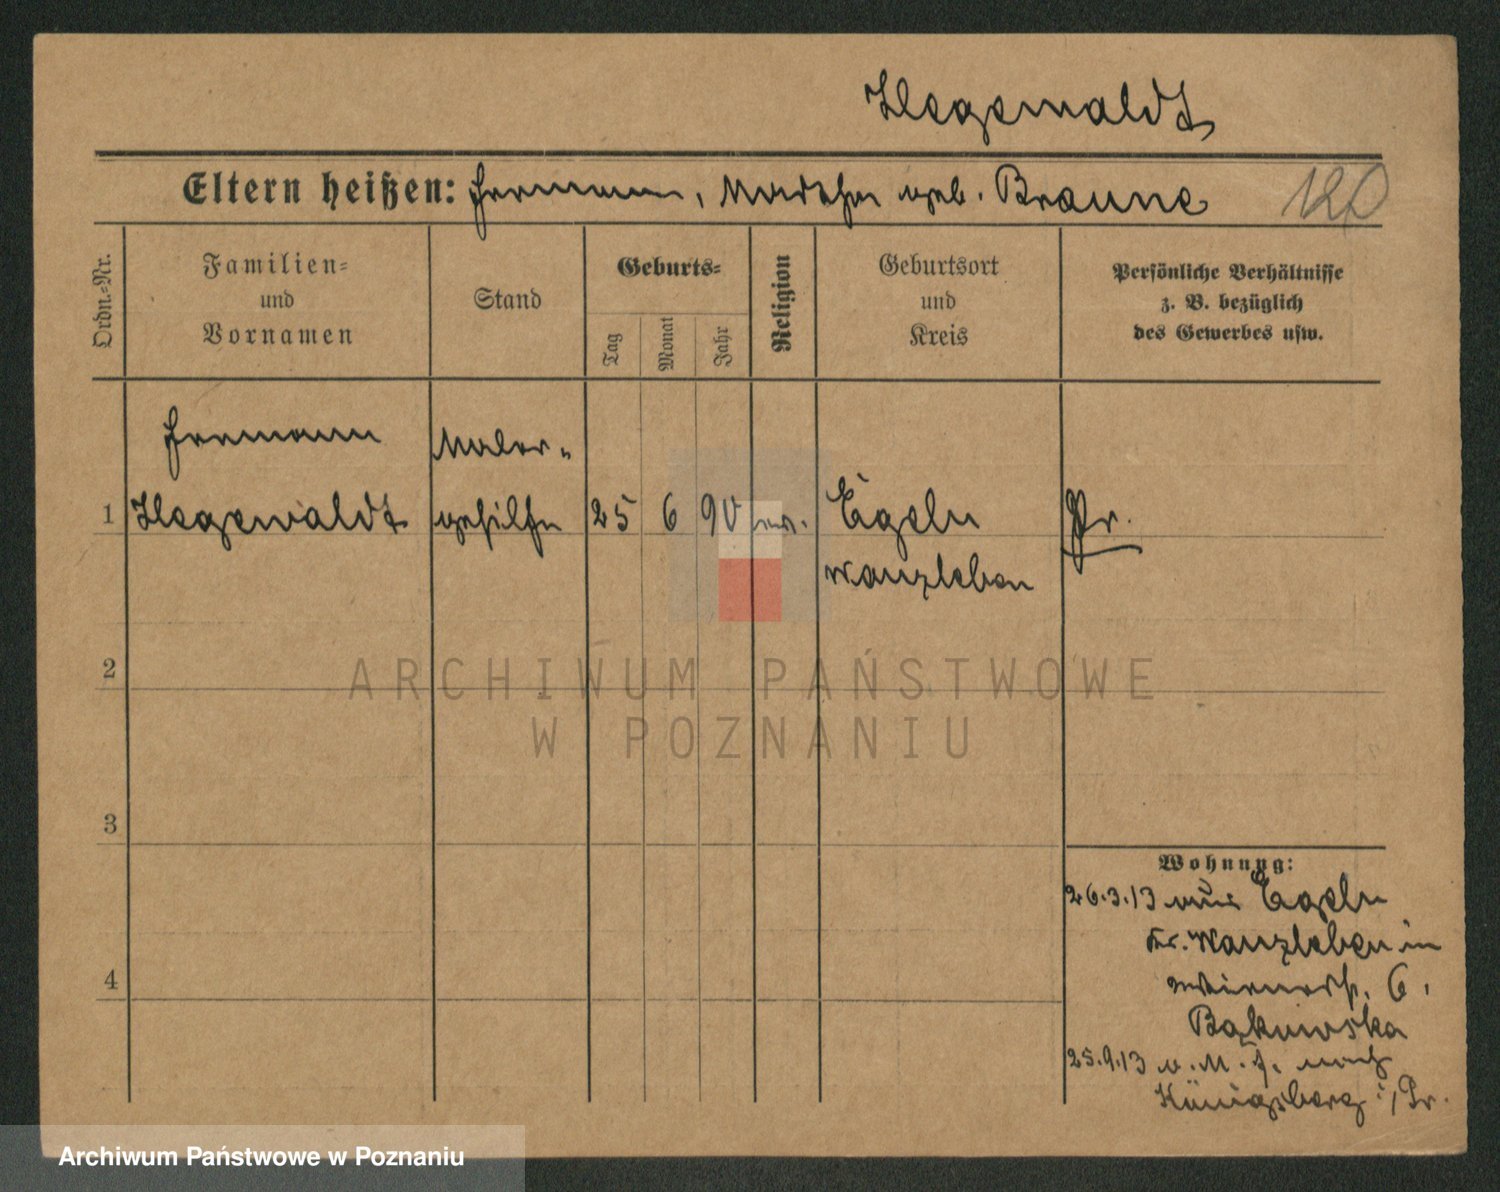 Hegewaldt
Eltern heißen: Hermann, Marthe geb. Braune 120
Ordn.-Nr.
Familien-
und
Vornamen
Stand
Geburts-
Tag
Monat
Jahr
Religion
Geburtsort
und
Kreis
Persönliche Verhältnisse
z. B. bezüglich
des Gewerbes usw.
Hermann Maler-
1 Hegewaldt gehilfe 25 6 90 ev. Egeln Pr.
Wanzleben
2
3
4
Wohnung:
26.3.13 aus Egeln
Kr. Wanzleben in
6.
Bąkowska
25.9.13 nach
Königsberg i/Pr.
ARCHIWUM PAŃSTWOWE
W POZNANIU
Archiwum Państwowe w Poznaniu